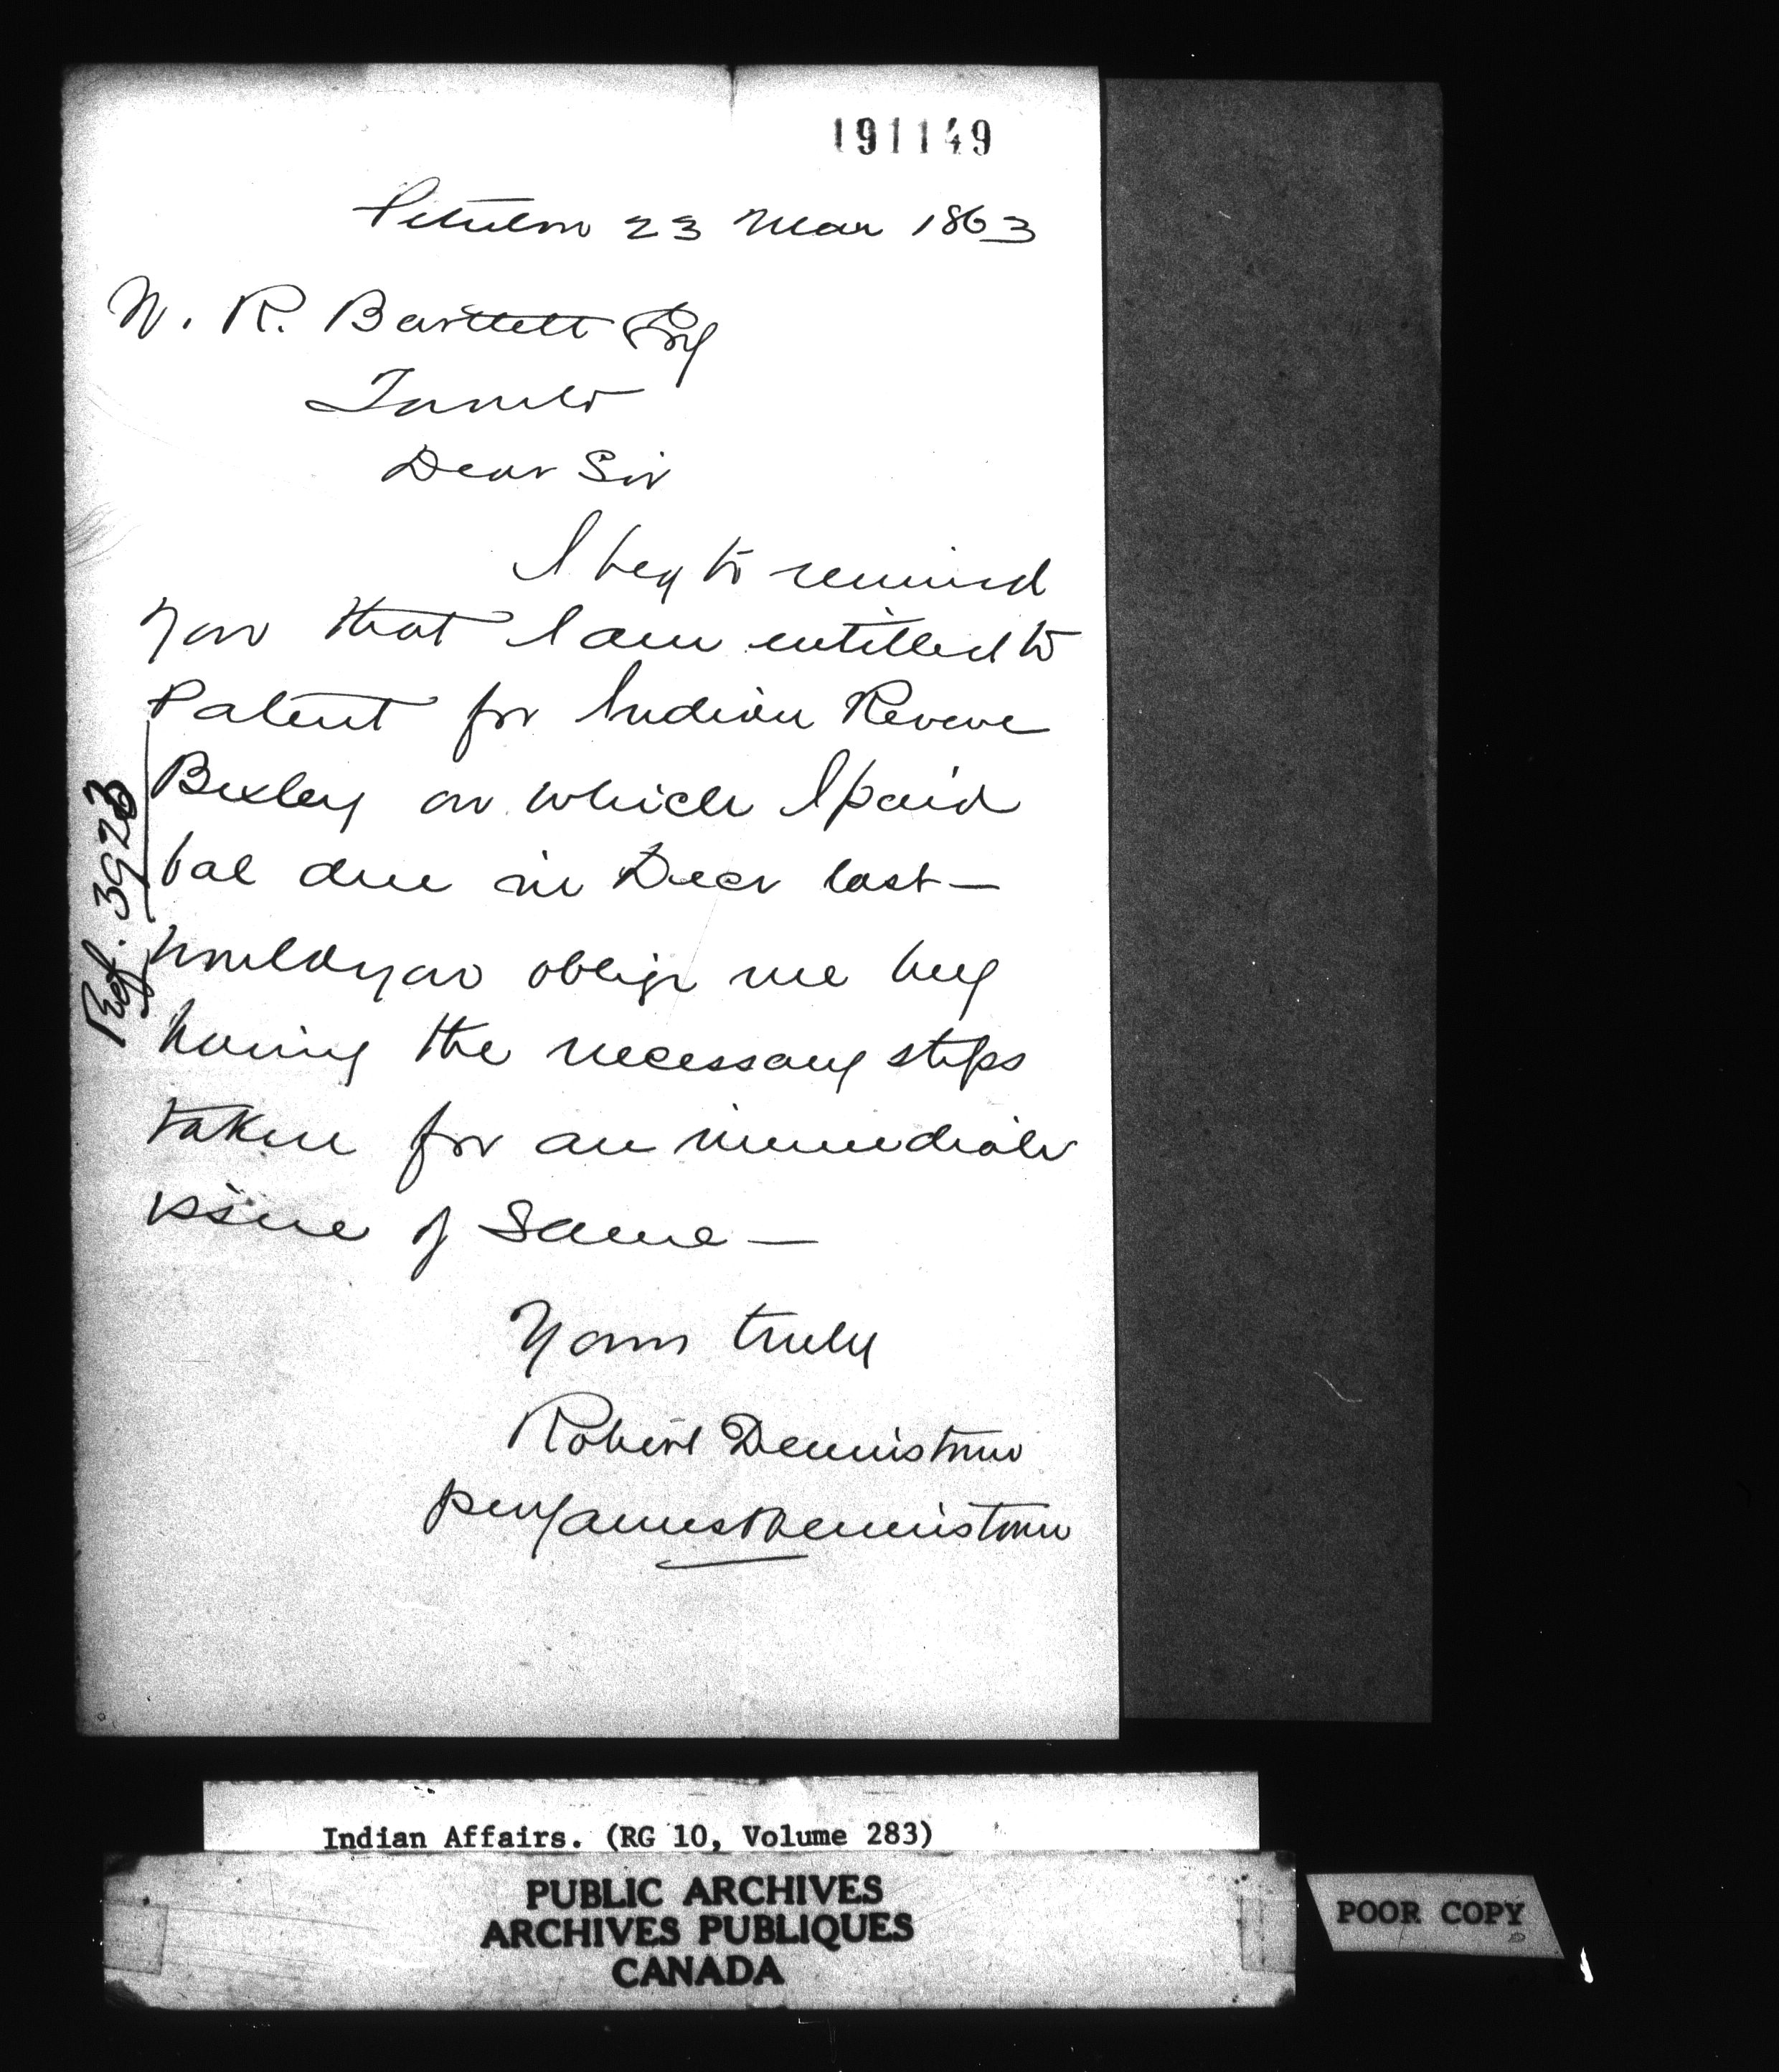 191149
23 Mar 1863
W. R. Bartlett Esq
Toronto
Dear Sir
I beg to remind
you that I am entitled to
Patent for Indian Reserve
Bexley on which I paid
bal due in Decr last —
would you oblige me by
having the necessary steps
taken for an immediate
issue of Same —
Yours truly
Robert Dennistoun
per James Dennistoun
Ref. 3923
Indian Affairs. (RG 10, Volume 283)
PUBLIC ARCHIVES
ARCHIVES PUBLIQUES
CANADA
POOR COPY